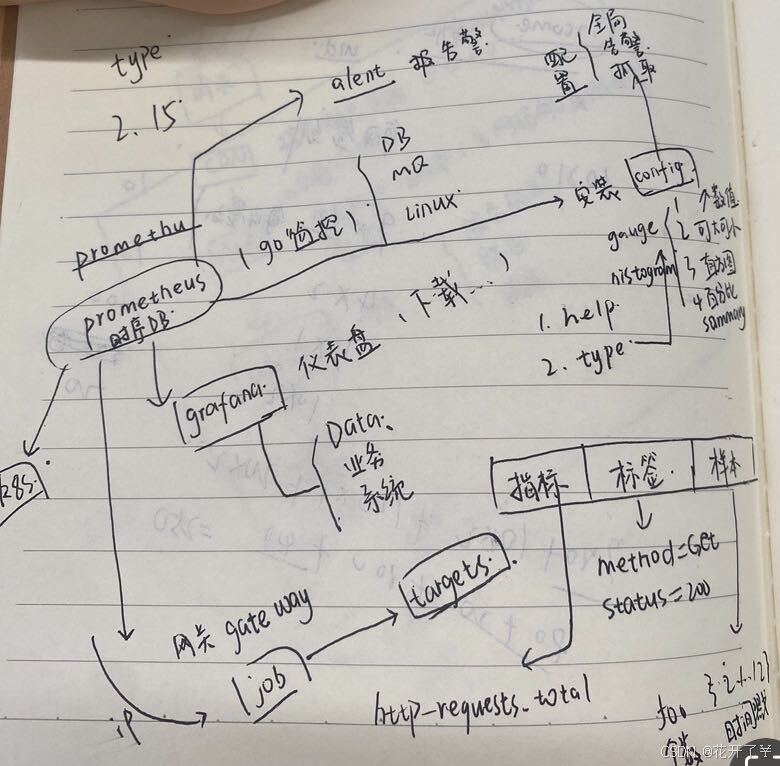 type
2.15
alent 报告警
配置
全局
告警
抓取
DB
MQ
Linux
安装
config
promethu
(go 监控)
prometheus
时序DB
1 ↑数值
gauge 2 可大可小
histogram 3 直方图
4 百分比
sammary
(下载...)
1. help
2. type
grafana
仪表盘
Data
业务
系统
k8s
指标 标签 样本
method=Get
status=200
网关 gate way
job
targets
ip
http-requests.total
时间戳
CSDN @花开了¥